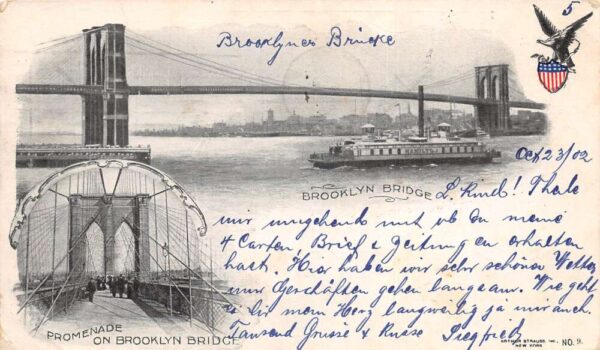 5
Brooklyner Brücke
Oct 23/02
BROOKLYN BRIDGE
L. Kind! Theile
mir umgehend mit ob du meine
4 Carten, Brief & Zeitung en erhalten
hast. Hier haben wir sehr schönes Wetter
nur Geschäften gehen langsam. Wie geht
es dir mein Herz langweilig ja mir auch.
Tausend Grüsse & Küsse Siegfried
PROMENADE
ON BROOKLYN BRIDGE
ARTHUR STRAUSS, INC.,
NEW YORK
NO. 9.